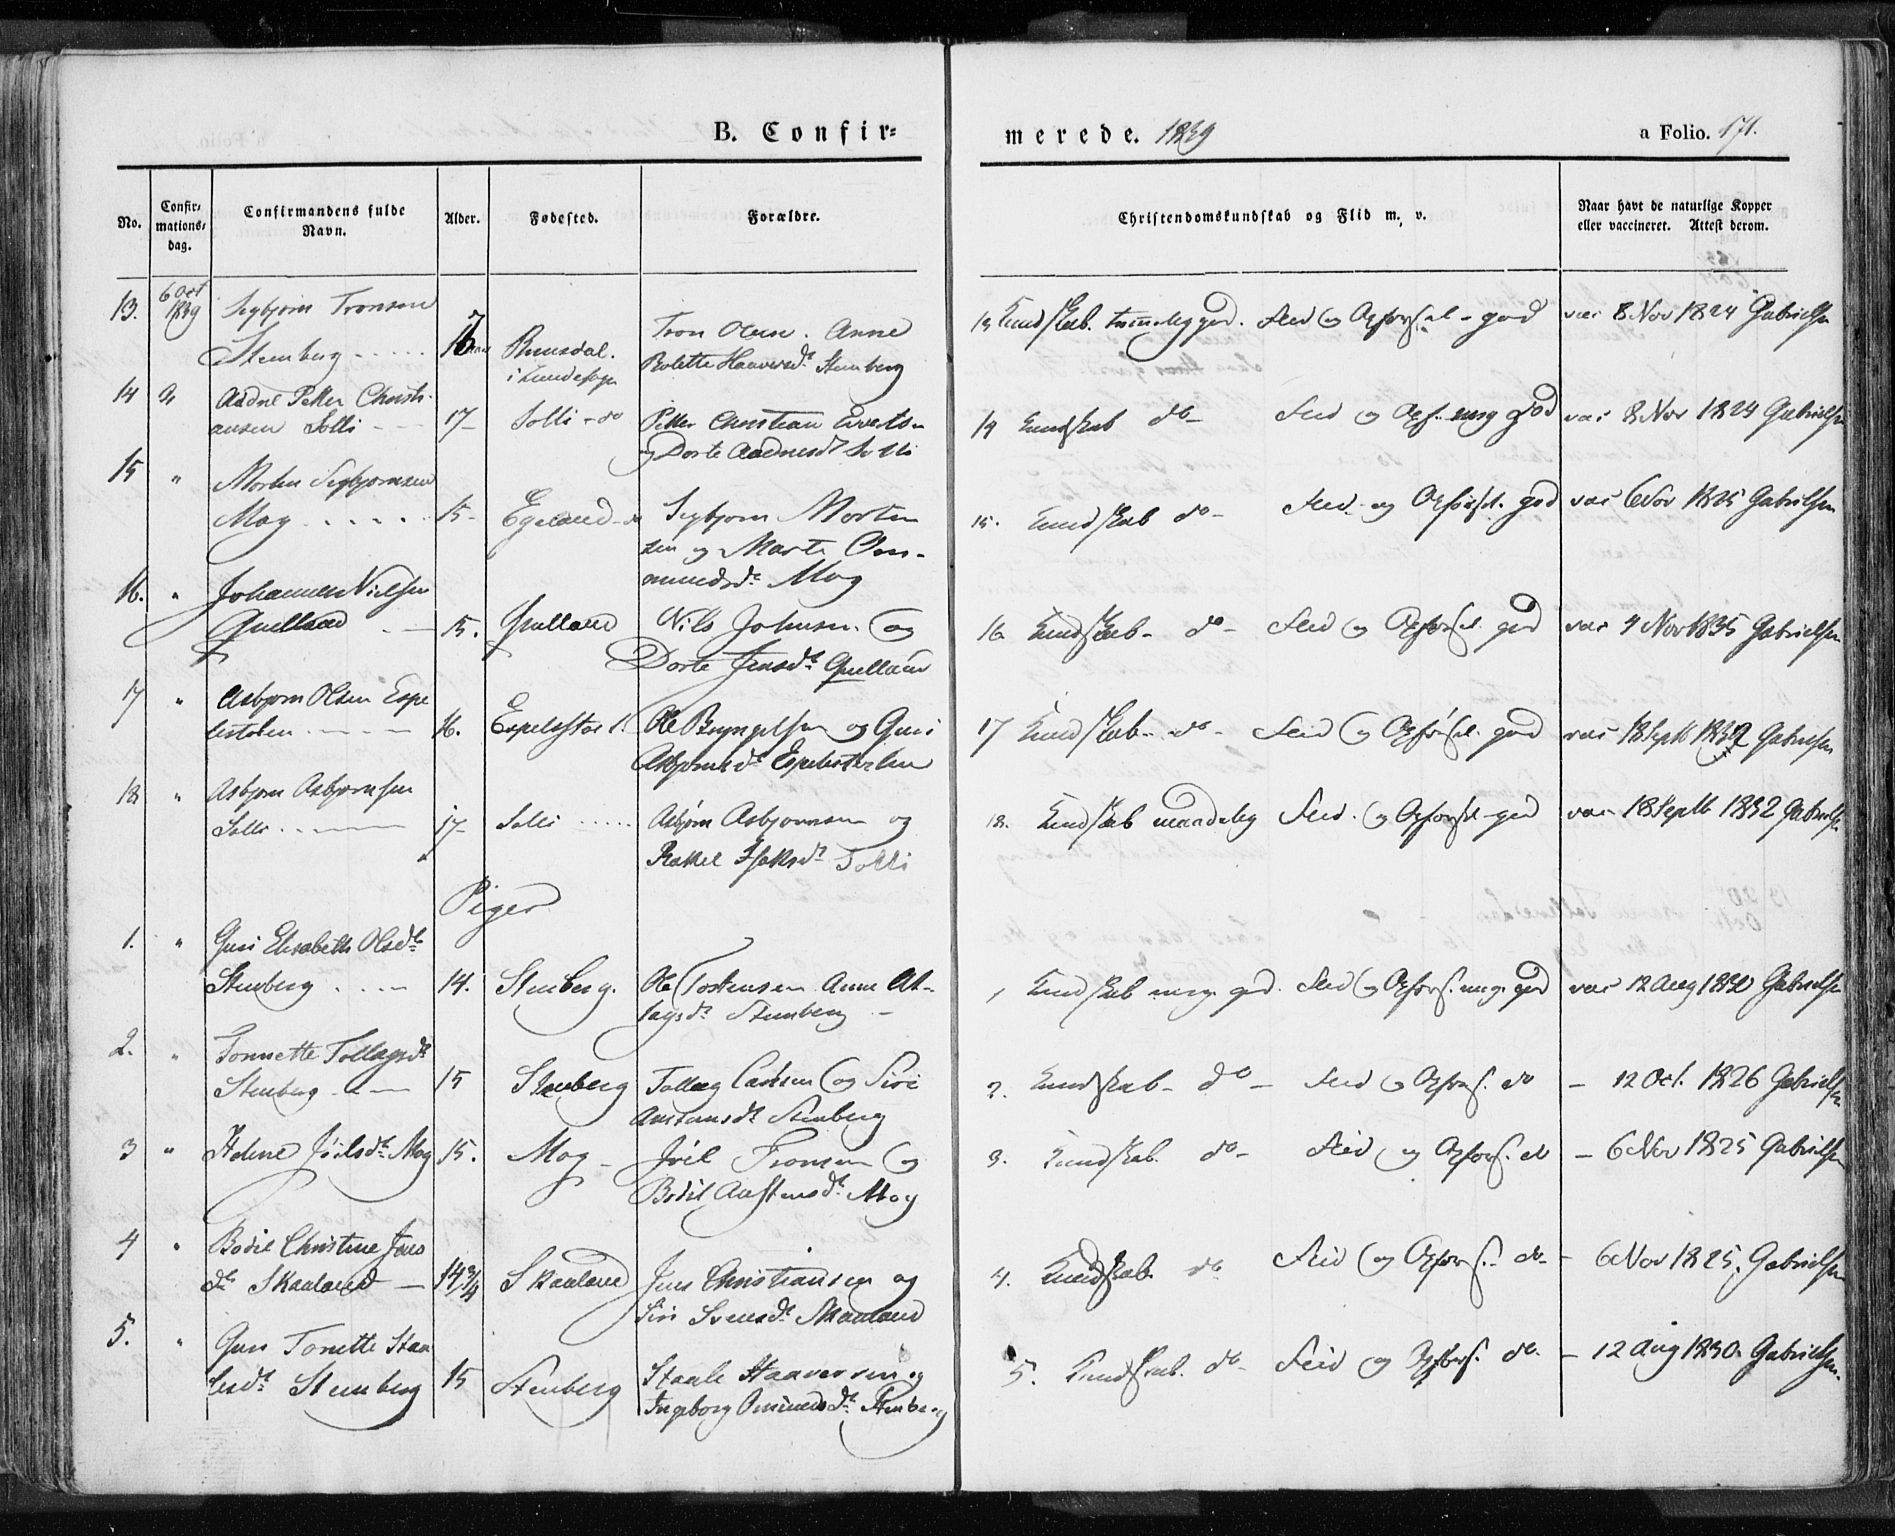 B. Confir-
merede. 1839
a Folio. 171.
No.
Confir-
mations-
dag.
Confirmandens fulde
Navn.
Alder.
Fødested.
Forældre.
Christendomskundskab og Flid m. v.
Naar havt de naturlige Kopper
eller vaccineret. Attest derom.
13. 6 Oct 1839 Sigbjørn Tronsen
Stenberg 16 Ruusdal. i Lundesogn
Tron Olsen. Anne
Bolette Haaversd. Stenberg
13 Kundskab. temmelig god. Flid og Opførsel god vac 8 Nov 1824 Gabrielsen
14 Aadne Petter Christi-
ansen Solli 17 Solli do
Petter Christian Evertsen
og Dorte Aadnesdr Solli
14 Kundskab do Flid og Opf. meg god vac 8 Nov 1824 Gabrielsen
15 " Morten Sigbjørnsen
Mog 15 Egeland
Sigbjørn Morten
sen og Marte Om-
mundsdr Mog
15. Kundskab do Flid og Opførsel. god vac 6 Nov 1825 Gabrielsen
16. " Johannes Nielsen
Qvelland 15. Qvelland
Nils Johnsen. og
Dorte Jensdr Qvelland
16 Kundskab do Flid og Opførsel god vac 4 Nov 1835 Gabrielsen
17 " Asbjørn Olsen Espe
lestølen 16. Espelestøl
Ole Bryngelsen og Guri
Asbjørnsdr Espelestølen
17 Kundskab do Flid og Opførsel. god vac 18 Septb 1832 Gabrielsen
18 " Asbjørn Asbjørnsen
Solli 17 Solli
Asbjørn Asbjørnsen og
Rakel Isaksdr Solli
18. Kundskab maadelig Flid. og Opførsel god vac 18 Septb 1832 Gabrielsen
Piger
1. " Guri Elisabeth Olsdr
Stenberg 14. Stenberg.
Ole Tostensen Anne As-
lagsdr Stenberg
1 Kundskab meg. god. Flid og Opførs. meg. god vac 12 Aug 1830 Gabrielsen
2. " Tonnette Tollagsdr
Stenberg 15 Stenberg
Tollag Carlsen og Siri
Austensdr Stenberg
2. Kundskab do Flid og Opførs. do 12 Oct. 1826 Gabrielsen
3 " Helene Joelsdr Mog 15. Mog
Joel Tronsen og
Bodil Austensdr Mog
3. Kundskab. do Flid og Opførs. do 6 Nov 1825 Gabrielsen
4 " Bodil Christine Jens
dr Skaaland 14 3/4 Skaaland
Jens Christiansen og
Siri Svensdr Skaaland
4. Kundskab. do Flid og Opførs. do 6 Nov 1825. Gabrielsen
5. " Guri Tonette Staa
lesdr Stenberg 15 Stenberg
Staale Haaversen og
Ingeborg Omundsdr Stenberg
5. Kundskab. do Flid og Opførs. do 12 Aug 1830. Gabrielsen.